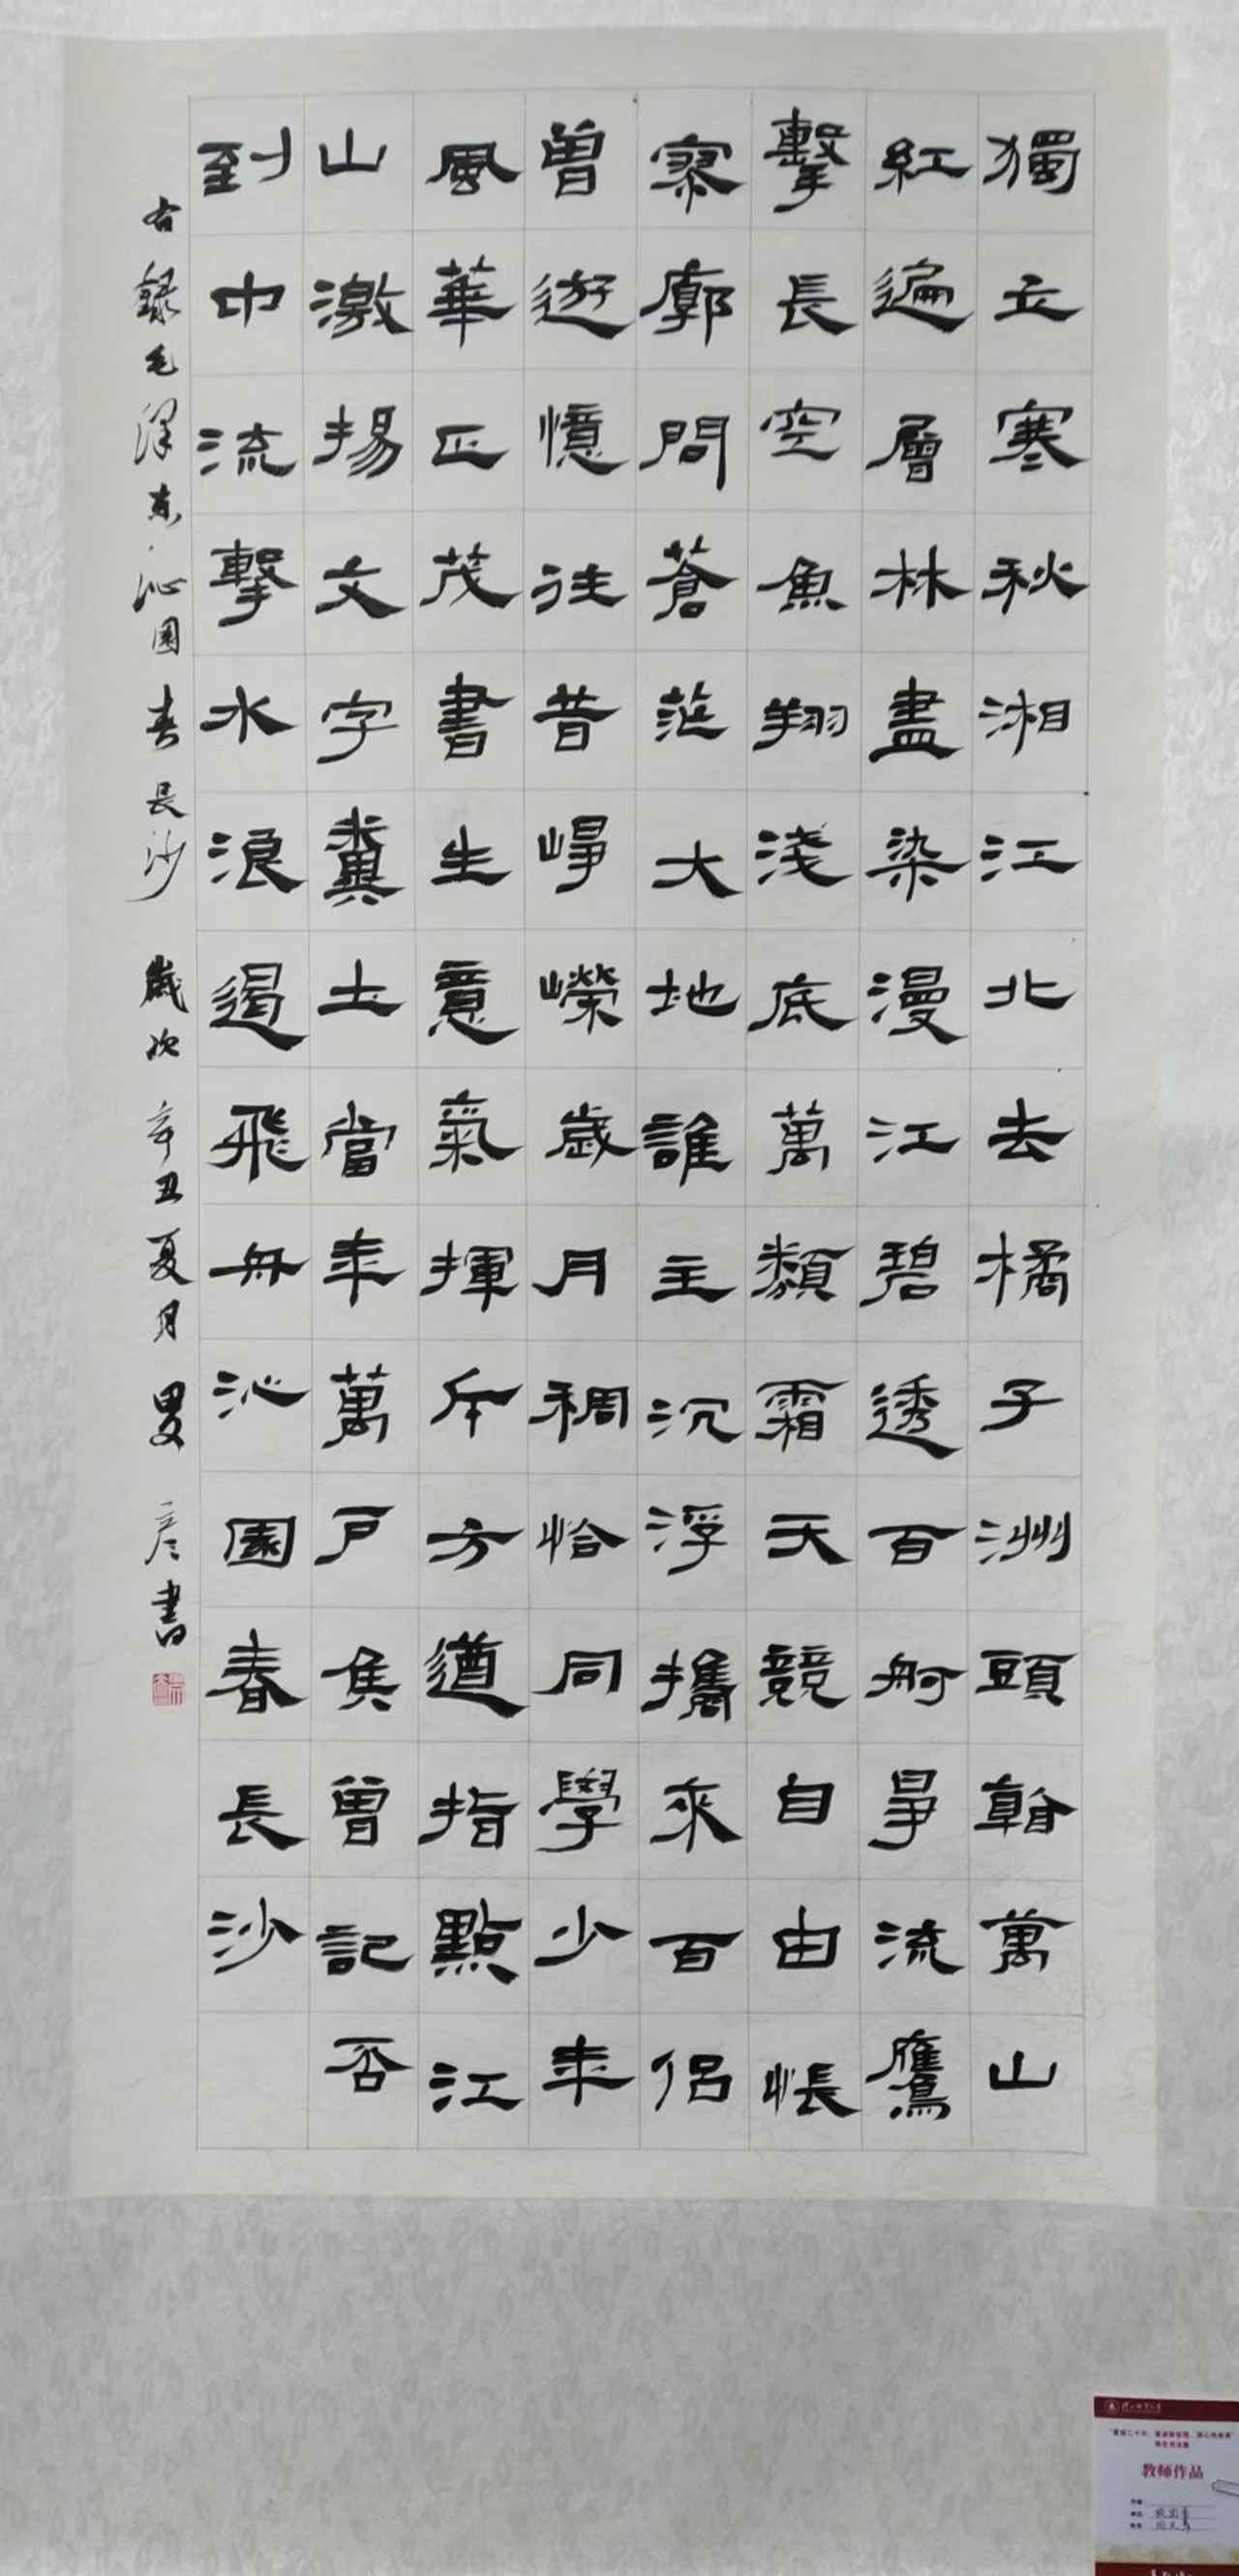 獨立寒秋湘江北去橘子洲頭𠦝萬山
紅遍層林盡染漫江碧透百舸爭流鷹
擊長空魚翔淺底萬類霜天競自由悵
寥廓問蒼茫大地誰主沉浮攜來百侶
曾遊憶往昔崢嶸歲月稠恰同學少年
風華正茂書生意氣揮斥方遒指點江
山激揚文字糞土當年萬戶侯曾記否
到中流擊水浪遏飛舟沁園春長沙
右錄毛澤東沁園春長沙 歲次辛丑夏月 書
教師作品